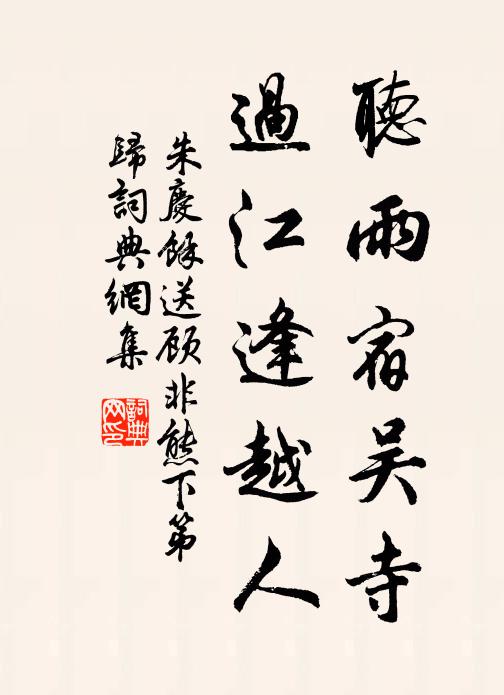 聽雨宿吳寺
過江逢越人
朱慶餘送顧非熊下第
歸詞典網集
詞典
网印